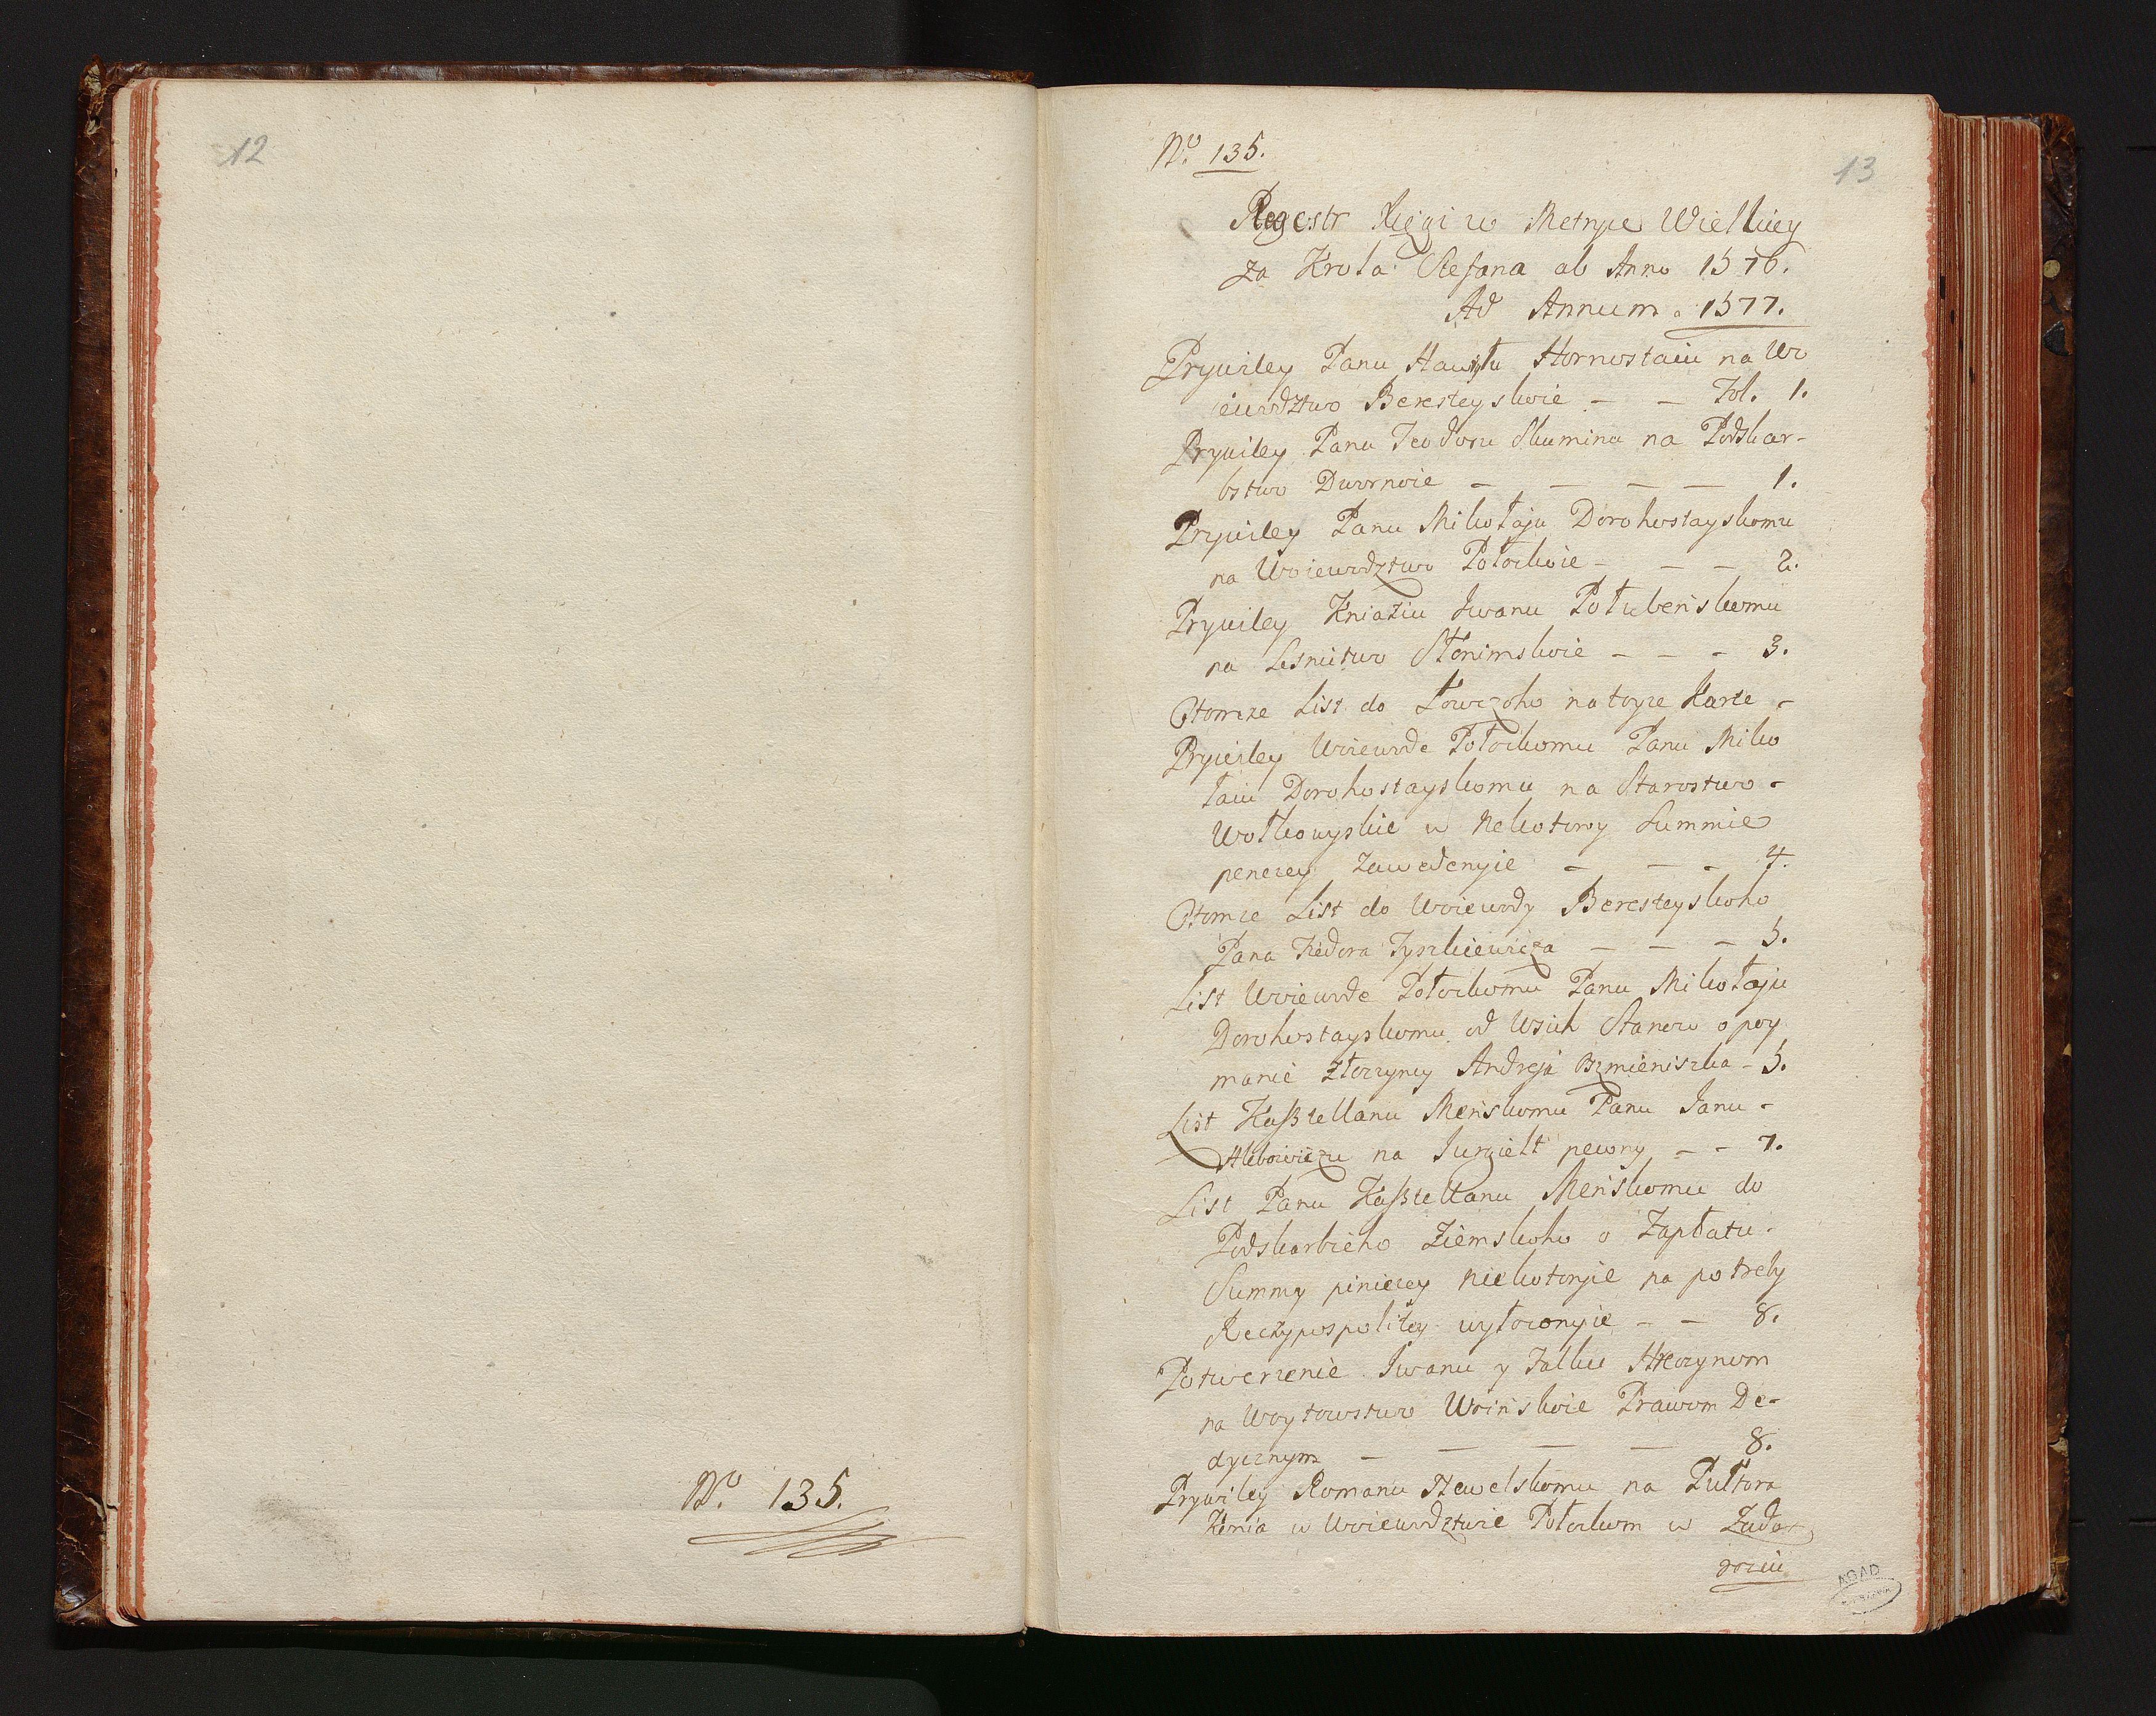 12
No. 135.
No. 135.
13
Regestr Xięgi w Metryce Wielkiey
za Krola Stefana ab Anno 1576.
Ad Annum. 1577.
Prywiley Panu Hawryłu Hornostaiu na Wo
iewodztwo Beresteyskoie - - Fol. 1.
Prywiley Panu Teodoru Skuminu na Podskar-
bstwo Dwornoie - - - - 1.
Prywiley Panu Mikołaju Dorohostayskomu
na Woiewodztwo Połockoie - - - 2.
Prywiley Kniaziu Iwanu Połubeńskomu
na Lesnictwo Słonimskoie - - - 3.
O tomze List do Łowczoho na toyze Karte -
Prywiley Woiewode Połockomu Panu Miko
łaiu Dorohostayskomu na Starostwo -
Wołkowyskie w Nekotoroy Summie
penezey Zawedenyie - - - 4.
O tomze List do Woiewody Beresteyskoho
Pana Fiedora Tyszkiewicza - - - 5.
List Woiewode Połockomu Panu Mikołaju
Dorohostayskomu od Wsich Stanow o poy
manie złoczyncy Andreja - 5.
List Kasztellanu Menskomu Panu Janu -
Hlebowiczu na Jurgielt pewny - - 7.
List Panu Kasztellanu Meńskomu do
Podskarbieho Ziemskoho o Zapłatu
Summy piniezey niekotoryie na potreby
Reczypospolitey wyłozonyie - - 8.
Potwerzenie Iwanu y Falku
na Woytowstwo Woińskoie Prawom De-
dycznym - - - - 8.
Prywiley Romanu na Pułtora
Konia w Woiewodztwie Połockom w Zado
roziu
AGAD